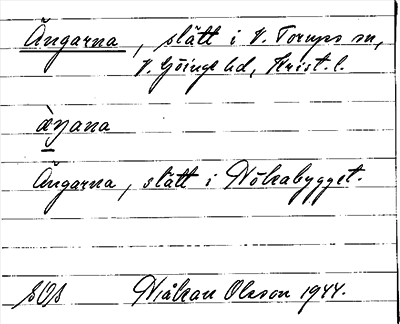 Ängarna, slätt i V. Torups sn,
V. Göinge hd, Krist. l.
æ̀ŋana
Ängarna, slätt i Nökabygget.
SOS Håkan Olsson 1944.